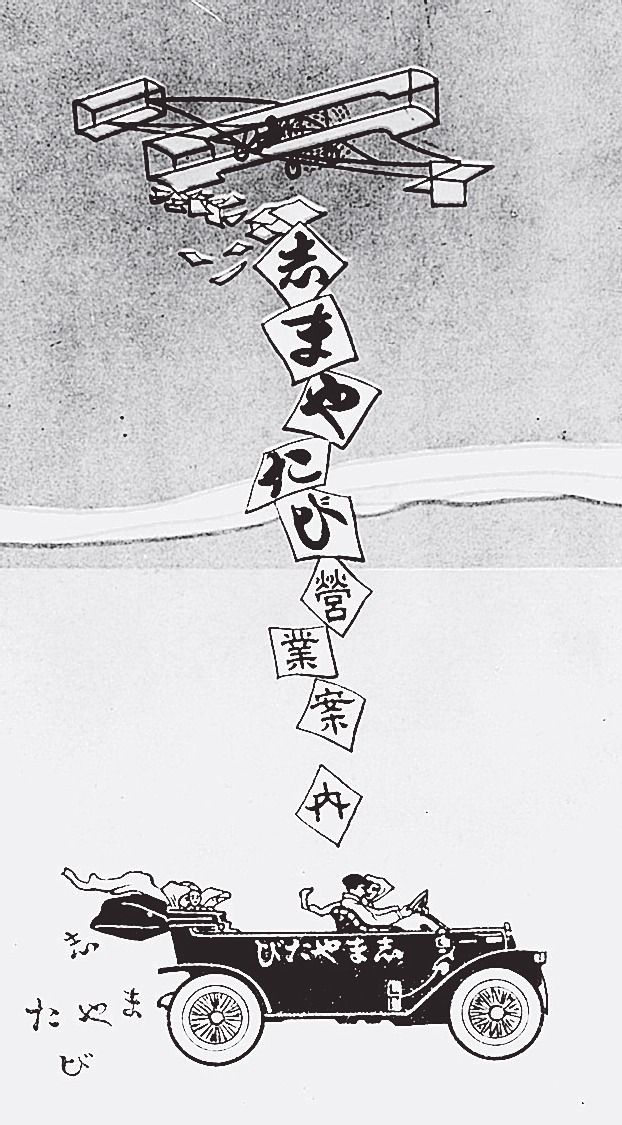 志まやたび營業案内
志まやたび
志まやたび